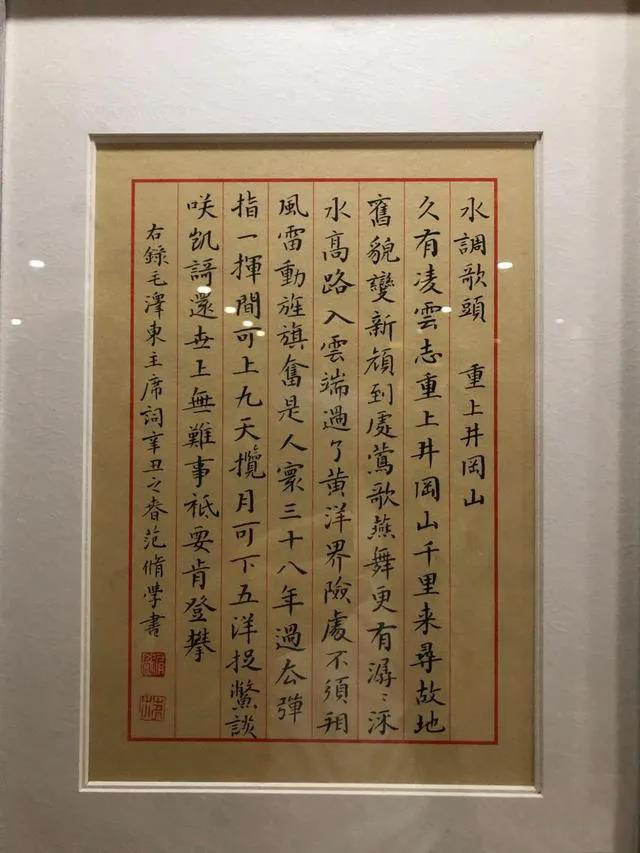 水調歌頭　重上井岡山
久有凌雲志重上井岡山千里来尋故地
舊貌變新顔到處鶯歌燕舞更有潺〻流
水高路入雲端過了黄洋界險處不須看
風雷動旌旗奮是人寰三十八年過去彈
指一揮間可上九天攬月可下五洋捉鱉談
咲凱謌還世上無難事祇要肯登攀
右録毛澤東主席詞辛丑之春范脩學書